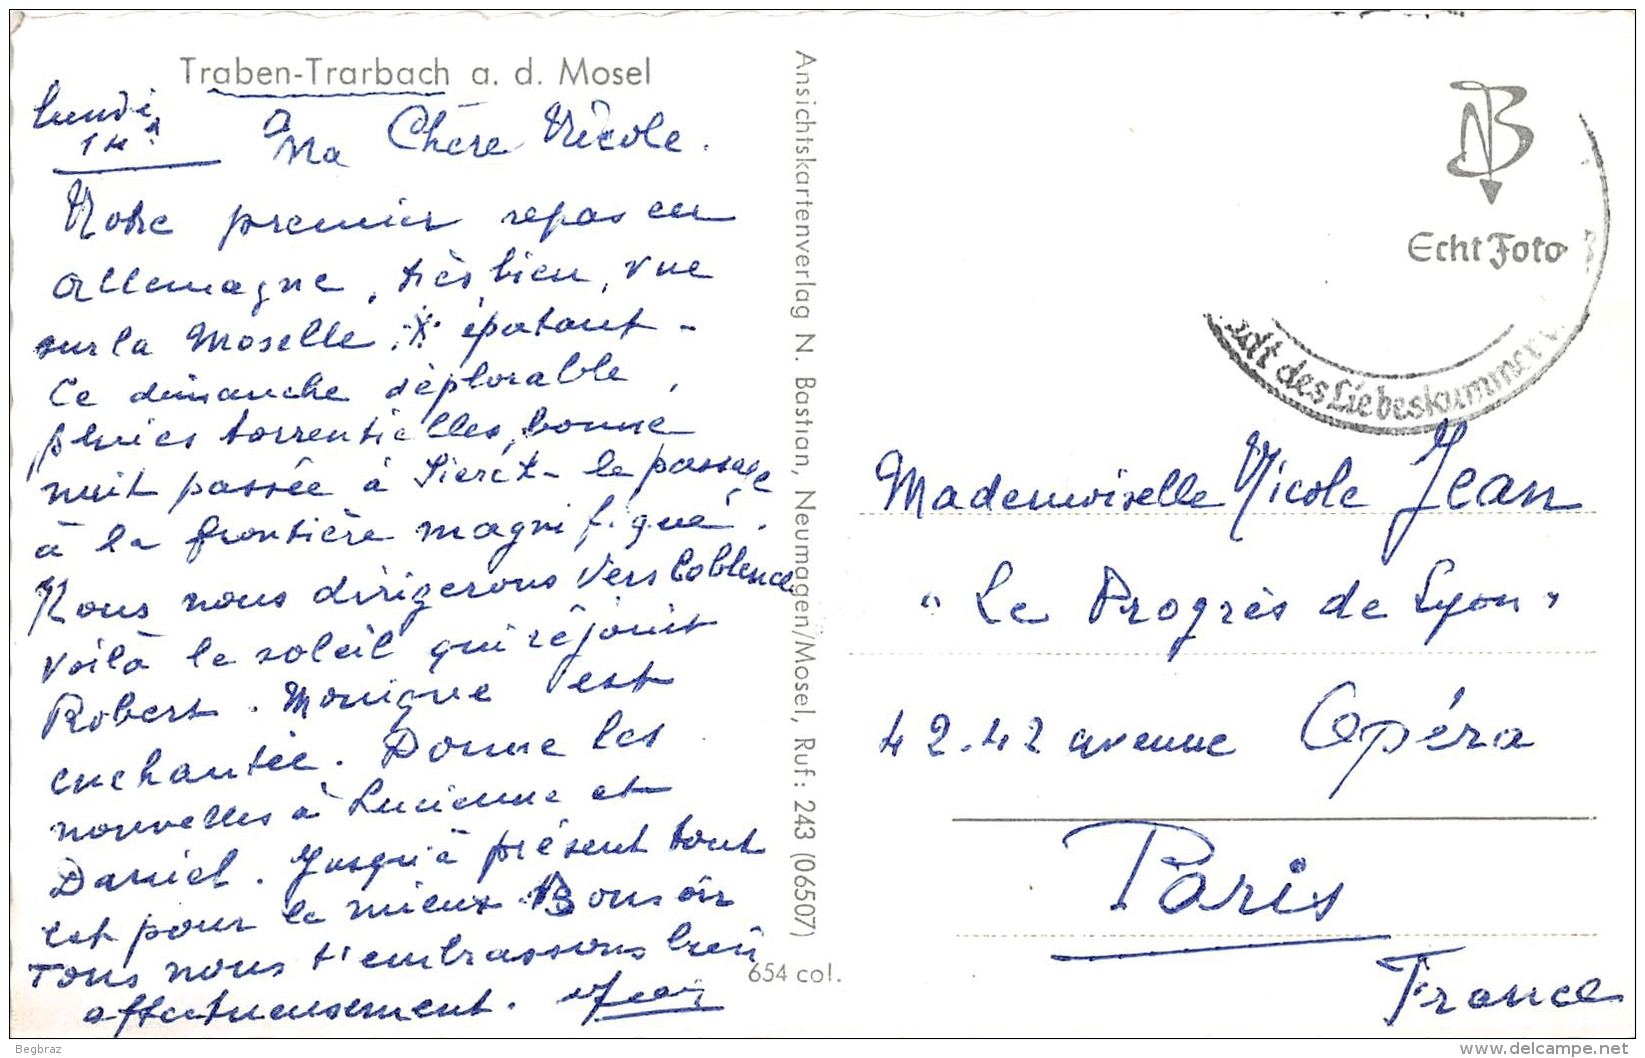 Traben-Trarbach a. d. Mosel
lundi
Ma Chère Nicole.
Notre premier repas en
Allemagne, très bien, vue
sur la Moselle. épatant -
Ce dimanche déplorable,
pluies torrentielles, bonne
nuit passée à Sierck - le passage
à la frontière magnifique.
Nous nous dirigerons vers Coblence
Voilà le soleil qui réjouit
Robert. Monique est
enchantée. Donne les
nouvelles à Lucienne et
Daniel. Jusqu'à présent tout
est pour le mieux. Bonsoir
Tous nous t'embrassons bien
affectueusement.
Ansichtskartenverlag N. Bastian, Neumagen/Mosel, Ruf: 243 (06507)
654 col.
NB
Echt Foto
des Liebeskummer
Mademoiselle Nicole Jean
"Le Progrès de Lyon"
42.42 avenue Opéra
Paris
France
Begbraz
delcampe.net